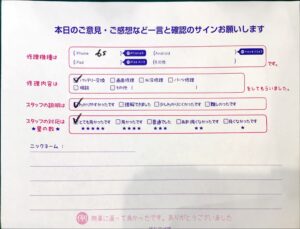 本日のご意見・ご感想など一言と確認のサインお願いします
修理機種は
iPhone 6s
Android
iPad
その他
です。
修理内容は
バッテリー交換 画面修理 水没修理 パーツ修理
その他
をしてもらいました。
スタッフの説明は
わかりやすかったです 理解できました 少しわかりにくかったです 難しかったです
スタッフの対応は
とても良かったです 良かったです 普通でした あまり良くなかったです 良くなかったです
★星の数★
★★★★★ ★★★★ ★★★ ★★ ★
ニックネーム:
無事に直って良かったです。ありがとうございました